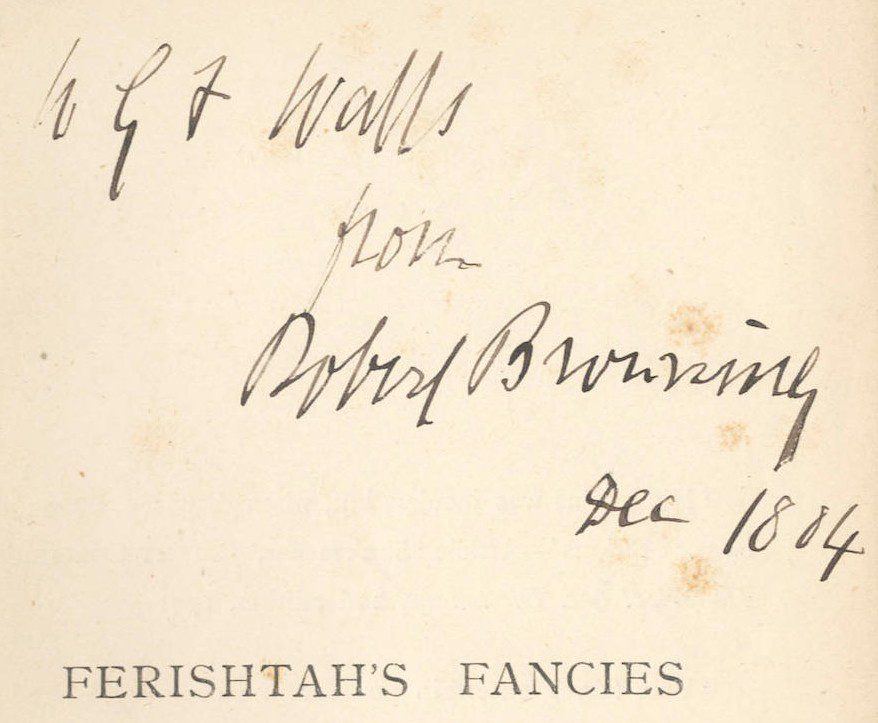 to G F Watts
from
Robert Browning
Dec 1884
FERISHTAH'S FANCIES